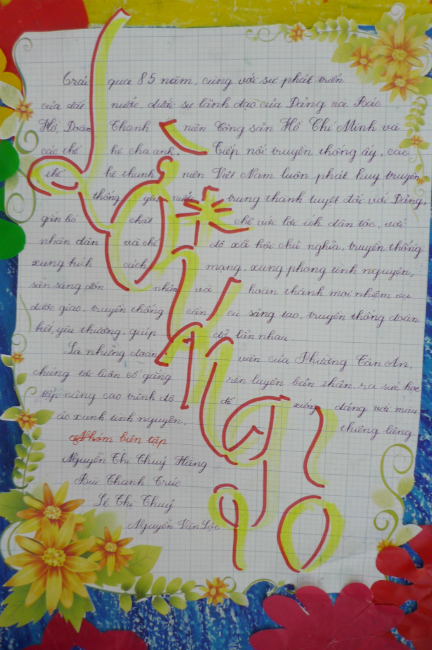 Trải qua 85 năm, cùng với sự phát triển
của đất nước, dưới sự lãnh đạo của Đảng và Bác
Hồ, Đoàn Thanh niên Cộng sản Hồ Chí Minh và
các thế hệ cha anh. Tiếp nối truyền thống ấy, các
thế hệ thanh niên Việt Nam luôn phát huy truyền
thống yêu nước trung thành tuyệt đối với Đảng,
gắn bó chặt chẽ với lợi ích dân tộc, với
nhân dân và chế độ xã hội chủ nghĩa, truyền thống
xung kích cách mạng, xung phong tình nguyện,
sẵn sàng đón nhận và hoàn thành mọi nhiệm vụ
được giao, truyền thống cần cù sáng tạo, truyền thống đoàn
kết, yêu thương, giúp đỡ lẫn nhau
Là những đoàn viên của Phường Tân An,
chúng tôi luôn cố gắng rèn luyện bản thân, ra sức học
tập nâng cao trình độ để xứng đáng với màu
áo xanh tình nguyện, chiêng liêng
Nhóm biên tập
Nguyễn Thị Thuý Hằng
Bùi Thanh Trúc
Lê Thị Thuý
Nguyễn Văn Lộc